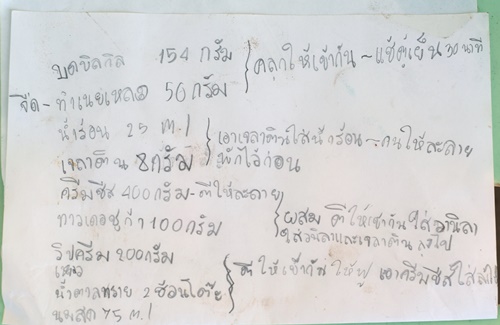 บดบิสกิต 154 กรัม } คลุกให้เข้ากัน ~ แช่ตู้เย็น 30 นาที
จืด - ทำเนยเหลว 50 กรัม
น้ำร้อน 25 m.l } เอาเจลาตินใส่น้ำร้อน - คนให้ละลาย
เจลาติน 8 กรัม } พักไว้ก่อน
ครีมชีส 400 กรัม - ตีให้ละลาย
ทาวเดอชูก้า 100 กรัม } ผสม ตีให้เข้ากัน ใส่วานิลา
ใส่วนิลาและเจลาติน ลงไป
วิปครีม 200 กรัม
เหลว } ตีให้เข้ากัน ให้ฟู เอาครีมชีสใส่ลงไป
น้ำตาลทราย 2 ช้อนโต๊ะ
นมสด 75 m.l